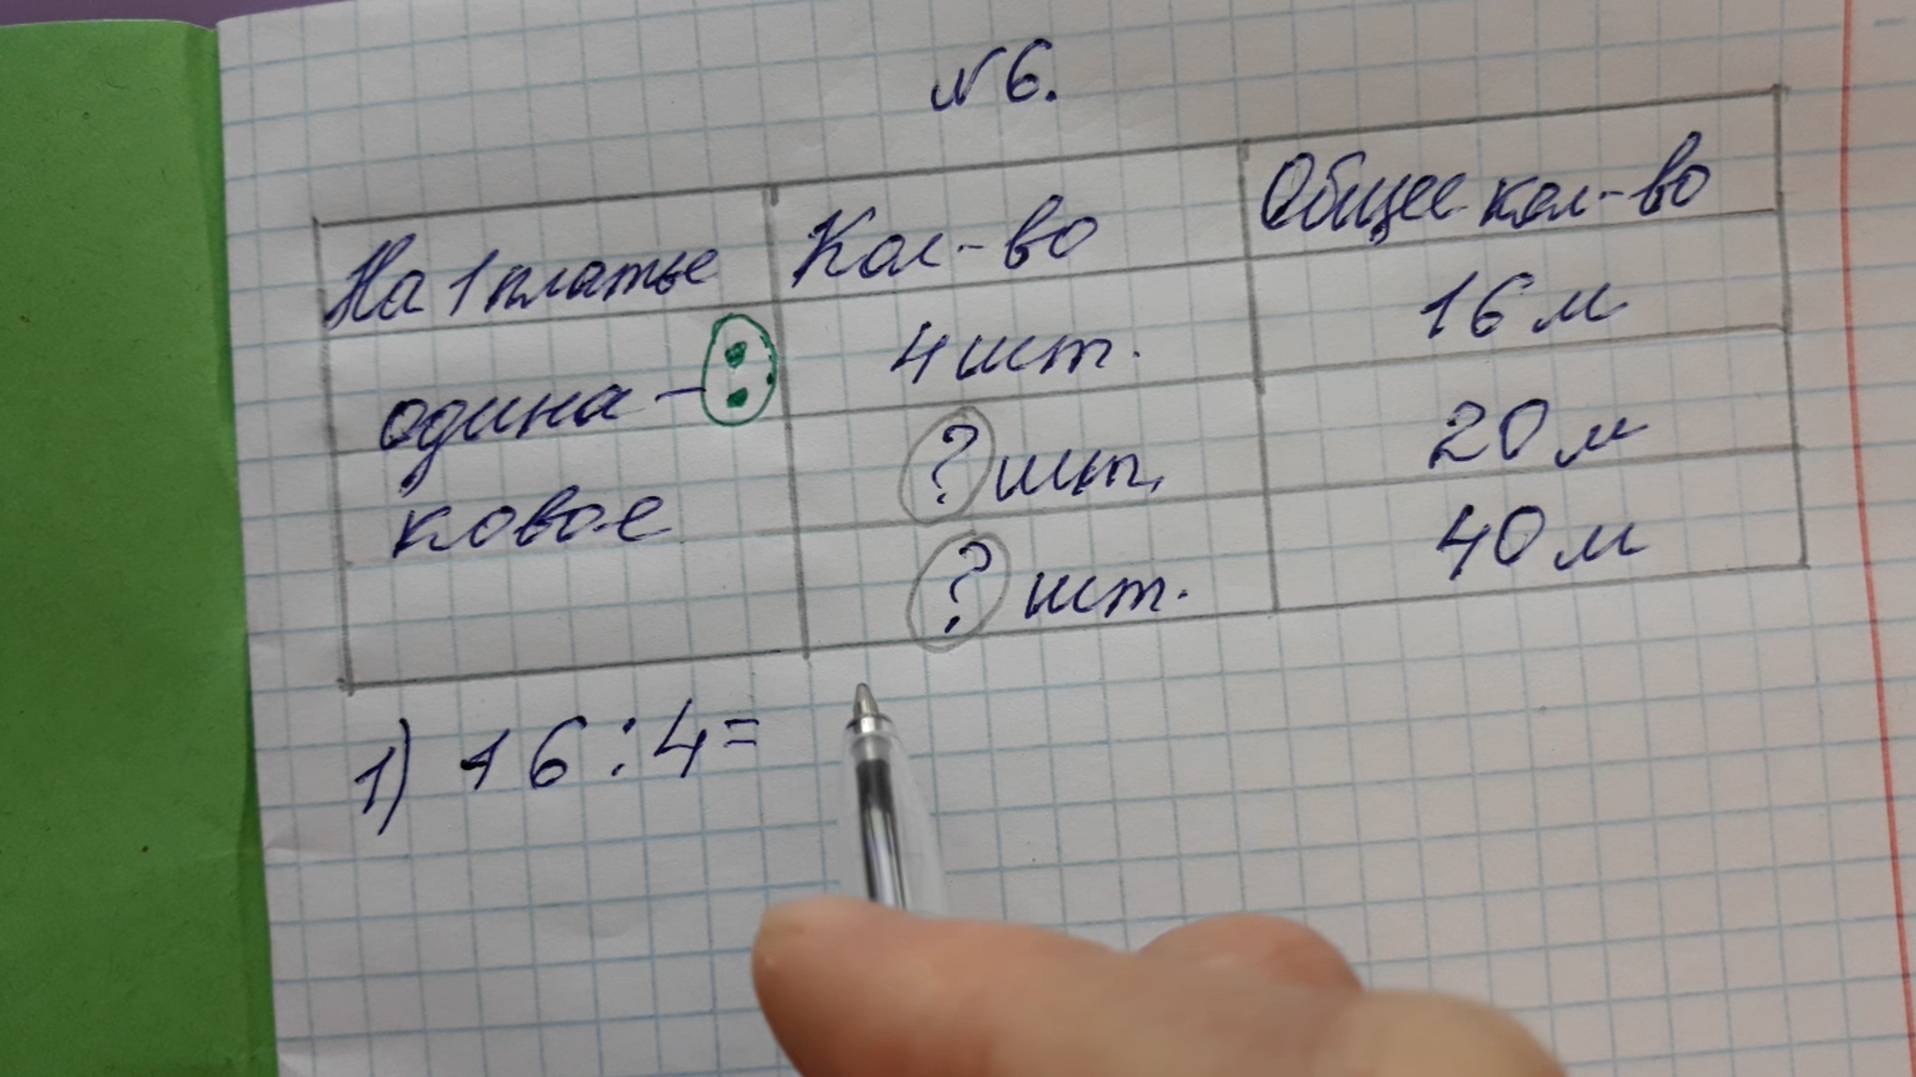 №6.
На 1 платье Кол-во Общее кол-во
одина- : 4 шт. 16 м
ковое ? шт. 20 м
? шт. 40 м
1) 16:4=